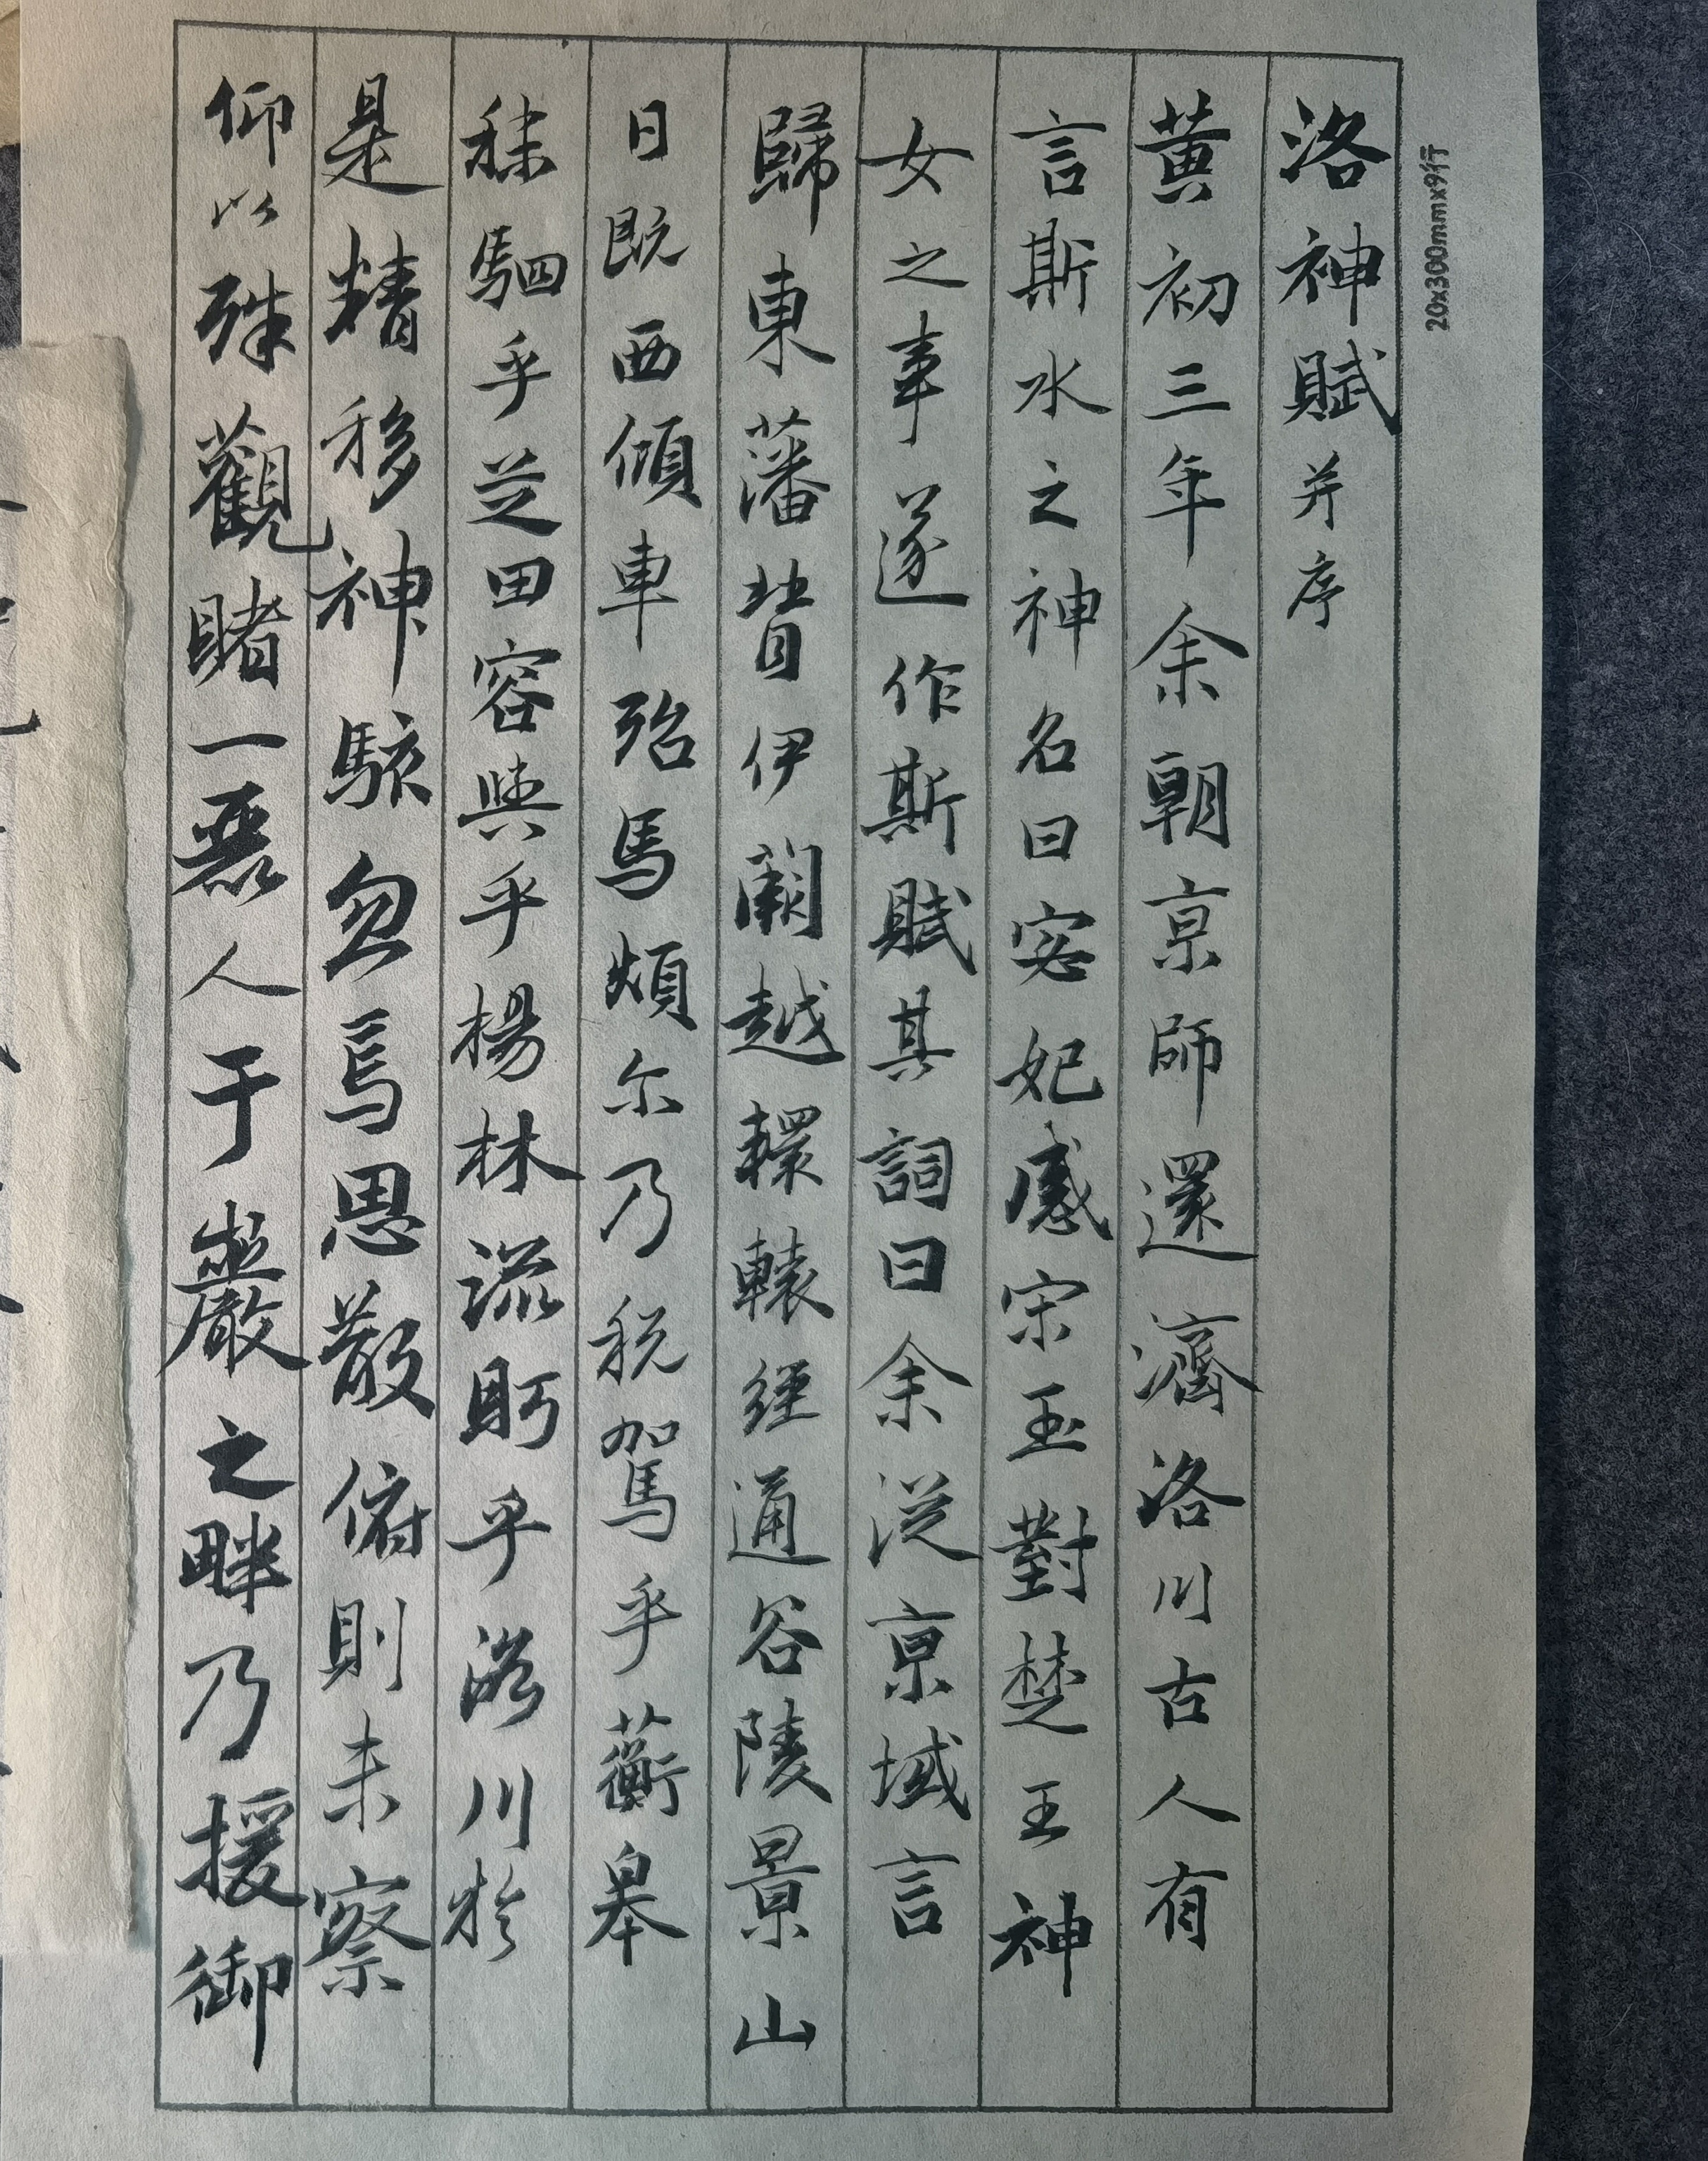 洛神賦并序
黄初三年余朝京師還濟洛川古人有
言斯水之神名曰宓妃感宋玉對楚王神
女之事遂作斯賦其詞曰余從京域言
歸東藩背伊闕越轘轅經通谷陵景山
日既西傾車殆馬煩尓乃税駕乎蘅皋
秣駟乎芝田容與乎楊林流眄乎洛川於
是精移神駭忽焉思散俯則未察
仰以殊觀睹一麗人于巖之畔乃援御
20x300mmx9行